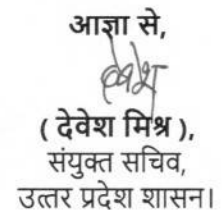 आज्ञा से,
देवेश
( देवेश मिश्र ),
संयुक्त सचिव,
उत्तर प्रदेश शासन।